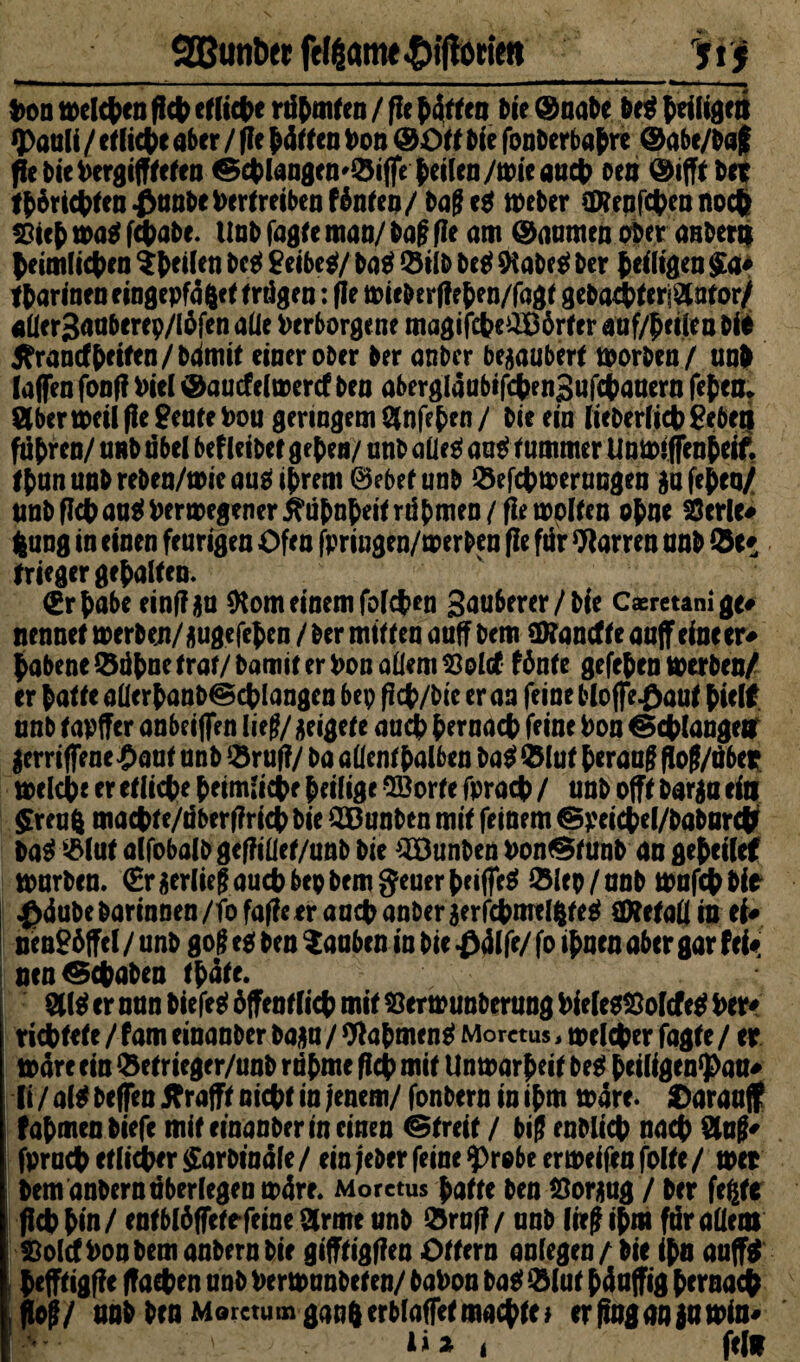 Wunder seltzame Historien 515
von welchen sich etliche rühmten / sie hätten die Gnade des heiligen
Pauli / etliche aber / sie hätten von GOtt die sonderbahre Gabe/daß
sie die vergiffteten Schlangen-Bisse heilen /wie auch den Gifft der
thörichten Hunde vertreiben könten / daß es weder Menschen noch
Vieh was schade. Und sagte man/ daß sie am Gaumen oder andern
heimlichen Theilen des Leibes/ das Bild des Rades der heiligen Ca-
tharinen eingepfätzet trügen: sie wiederstehen/sagt gedachter Autor/
aller Zauberey/lösen alle verborgene magische Wörter auf/heilen die
Kranckheiten/ damit einer oder der ander bezaubert worden / und
lassen sonst viel Gauckelwerck den abergläubischen Zuschauern sehen.
Aber weil sie Leute von geringem Ansehen / die ein liederlich Leben
führen/ und übel bekleidet gehen/ und alles aus tummer Unwissenheit.
thun und reden/wie aus ihrem Gebet und Beschwerungen zu sehen/
und sich aus verwegener Kühnheit rühmen / sie wolten ohne Verle-
tzung in einen feurigen Ofen springen/werden sie für Narren und Be-
trieger gehalten.
Er habe einst zu Rom einem solchen Zauberer / die Cæretani ge-
nennet werden/ zugesehen / der mitten auff dem Marckte auff eine er-
habene Bühne trat/ damit er von allem Volck könte gesehen werden/
er hatte allerhand Schlangen bey sich/die er an seine blosse Haut hielt
und tapffer anbeissen ließ/ zeigete auch hernach seine von Schlangen
zerrissene Haut und Brust/ da allenthalben das Blut herauß floß/über
welche er etliche heimliche heilige Worte sprach / und offt darzu ein
Creutz machte/überstrich die Wunden mit seinem Speichel/dadurch
das Blut alsobald gestillet/und die Wunden von Stund an geheilet
wurden. Er zerließ auch bey dem Feuer heisses Bley / und wusch die
Häude darinnen /so faste er auch ander zerschmeltztes Metall in ei-
nen Löffel / und goß es den Tauben in die Hälse/ so ihnen aber gar kei-
nen Schaden thäte.
Als er nun dieses öffentlich mit Verwunderung vieles Volckes ver-
richtete / kam einander dazu / Nahmens Moretus, welcher sagte / er
wäre ein Betrieger/und rühme sich mit Unwarheit des heiligen Pau-
li / als dessen Krafft nicht in jenem/ sondern in ihm wäre. Darauff
kahmen diese mit einander in einen Streit / biß endlich nach Auß-
spruch etlicher Cardinäle / ein jeder seine Probe erweisen solte / wer
dem andern überlegen wäre. Moretus hatte den Vorzug / der setzte
sich hin / entblössete seine Arme und Brust / und ließ ihm für allem
Volck von dem andern die gifftigsten Ottern anlegen / die ihn auffs
hefftigste stachen und verwundeten/ davon das Blut häuffig hernach
floß/ und den Moretum gantz erblasset machte; er fing an zu win-
Ii 2 seln